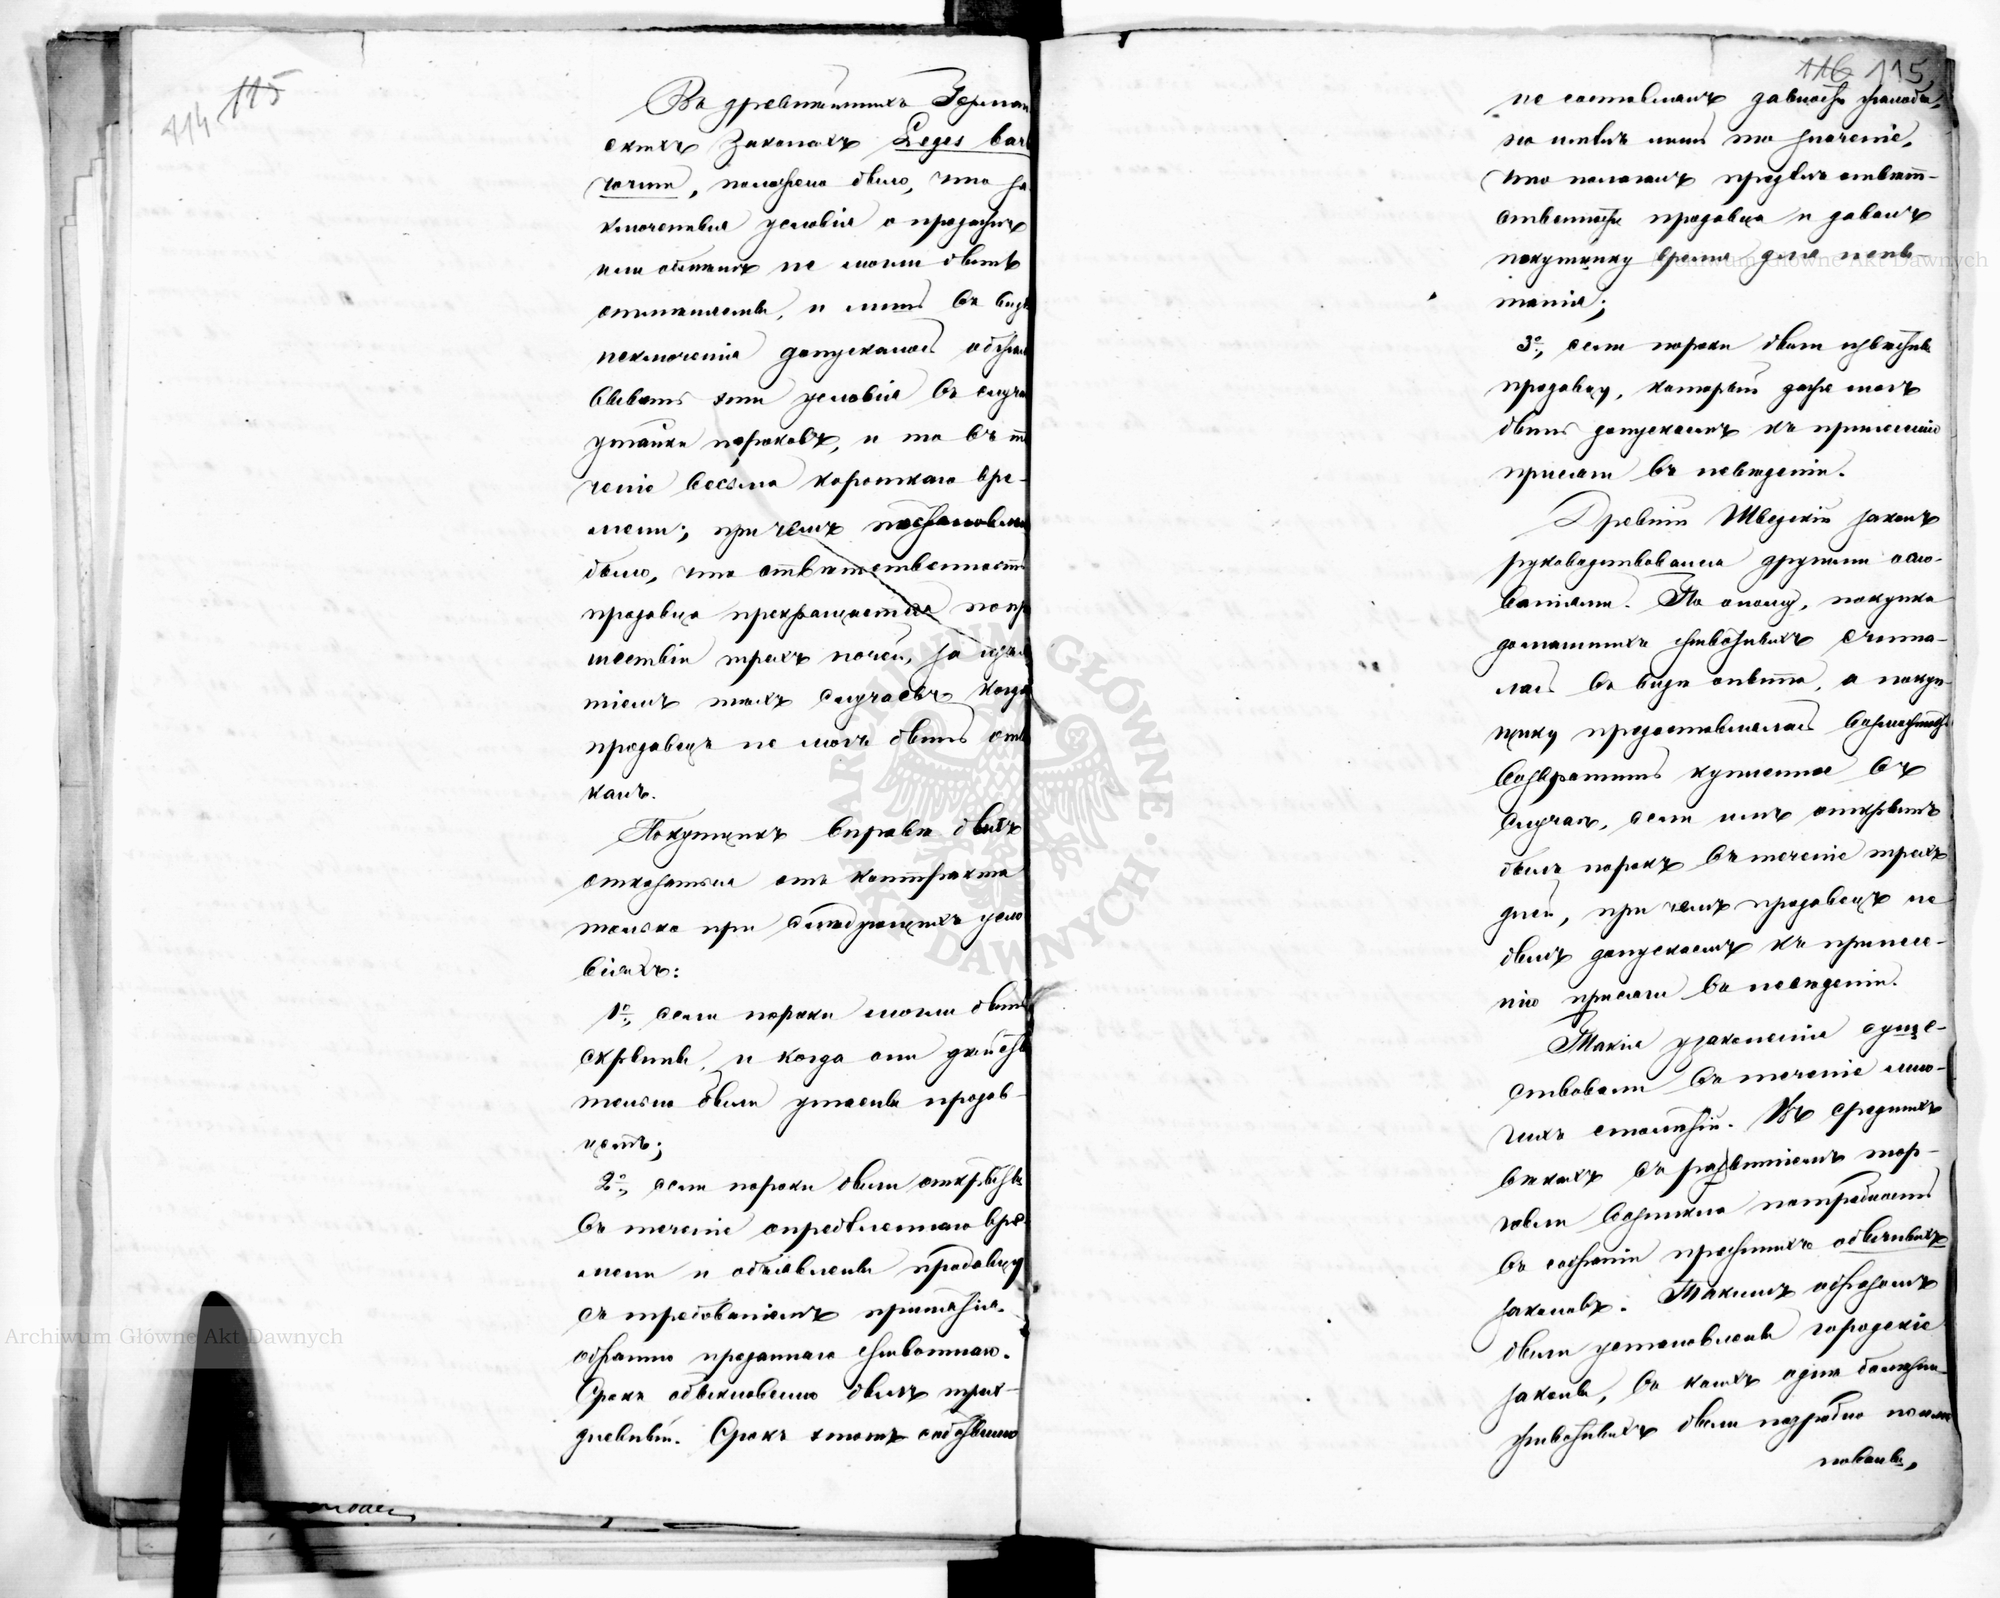 114 115
Въ древнѣйшихъ Герман
скихъ Законахъ Leges bar
rorum, положено было, что за
ключенныя условія о продажѣ
или обмѣнѣ не могли быть
отмѣняемы, и лишь въ видѣ
исключенія допускалось
условія въ случаѣ
утайки пороковъ, и то въ те
ченіе весьма короткаго вре-
мени; при чемъ постановлено
было, что отвѣтственность
продавца прекращается по про
шествіи трехъ ночей, за изъя
тіемъ тѣхъ случаевъ когда
продавецъ не могъ быть
Покупщикъ вправѣ былъ
отказаться отъ контракта
только при слѣдующихъ усло
віяхъ:
1º, если пороки могли быть
скрыты, и когда они дѣйстви
тельно были утаены продав-
цемъ;
2º, если пороки были открыты
въ теченіе опредѣленнаго вре-
мени и объявлены продавцу
съ требованіемъ принятія
обратно проданнаго животнаго.
Срокъ обыкновенно былъ трех-
дневный. Срокъ этотъ собственно
116 115
не составлялъ давности
но имѣлъ лишь то значеніе,
что полагалъ предѣлъ отвѣт-
ственности продавца и давалъ
покупщику время для испы-
танія;
3º, если пороки были извѣстны
продавцу, который даже могъ
быть допускаемъ къ принесенію
присяги въ невѣденіи.
Древній Шведскій законъ
руководствовался другими осно-
ваніями. По оному, покупка
домашнихъ животныхъ счита-
лась въ видѣ опыта, а покуп-
щику предоставлялась возможность
возвратить купленное въ
случаѣ, если имъ открытъ
былъ порокъ въ теченіе трехъ
дней, при чемъ продавецъ не
былъ допускаемъ къ принесе-
нію присяги въ невѣденіи.
Такія узаконенія суще-
ствовали въ теченіе мно-
гихъ столѣтій. Въ среднихъ
вѣкахъ съ развитіемъ тор-
говли возникла потребность
въ собраніи прежнихъ обычныхъ
законовъ. Такимъ образомъ
были установлены городскіе
законы, въ коихъ одни болѣзни
животныхъ были подробно поиме
нованы,
Archiwum Główne Akt Dawnych
Archiwum Główne Akt Dawnych
ARCHIWUM GŁÓWNE AKT DAWNYCH